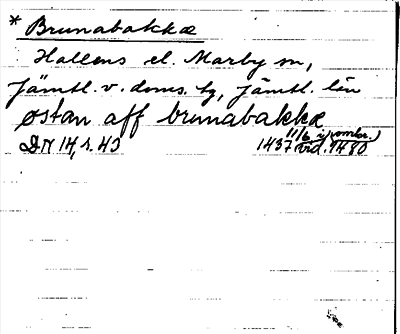 * Brunabakkæ
Hallens el. Marby sn,
Jämtl. v. doms. tg, Jämtl. län
østan aff brunabakkæ
DN 14, s. 43
11/6 i
1437 vid. 1480